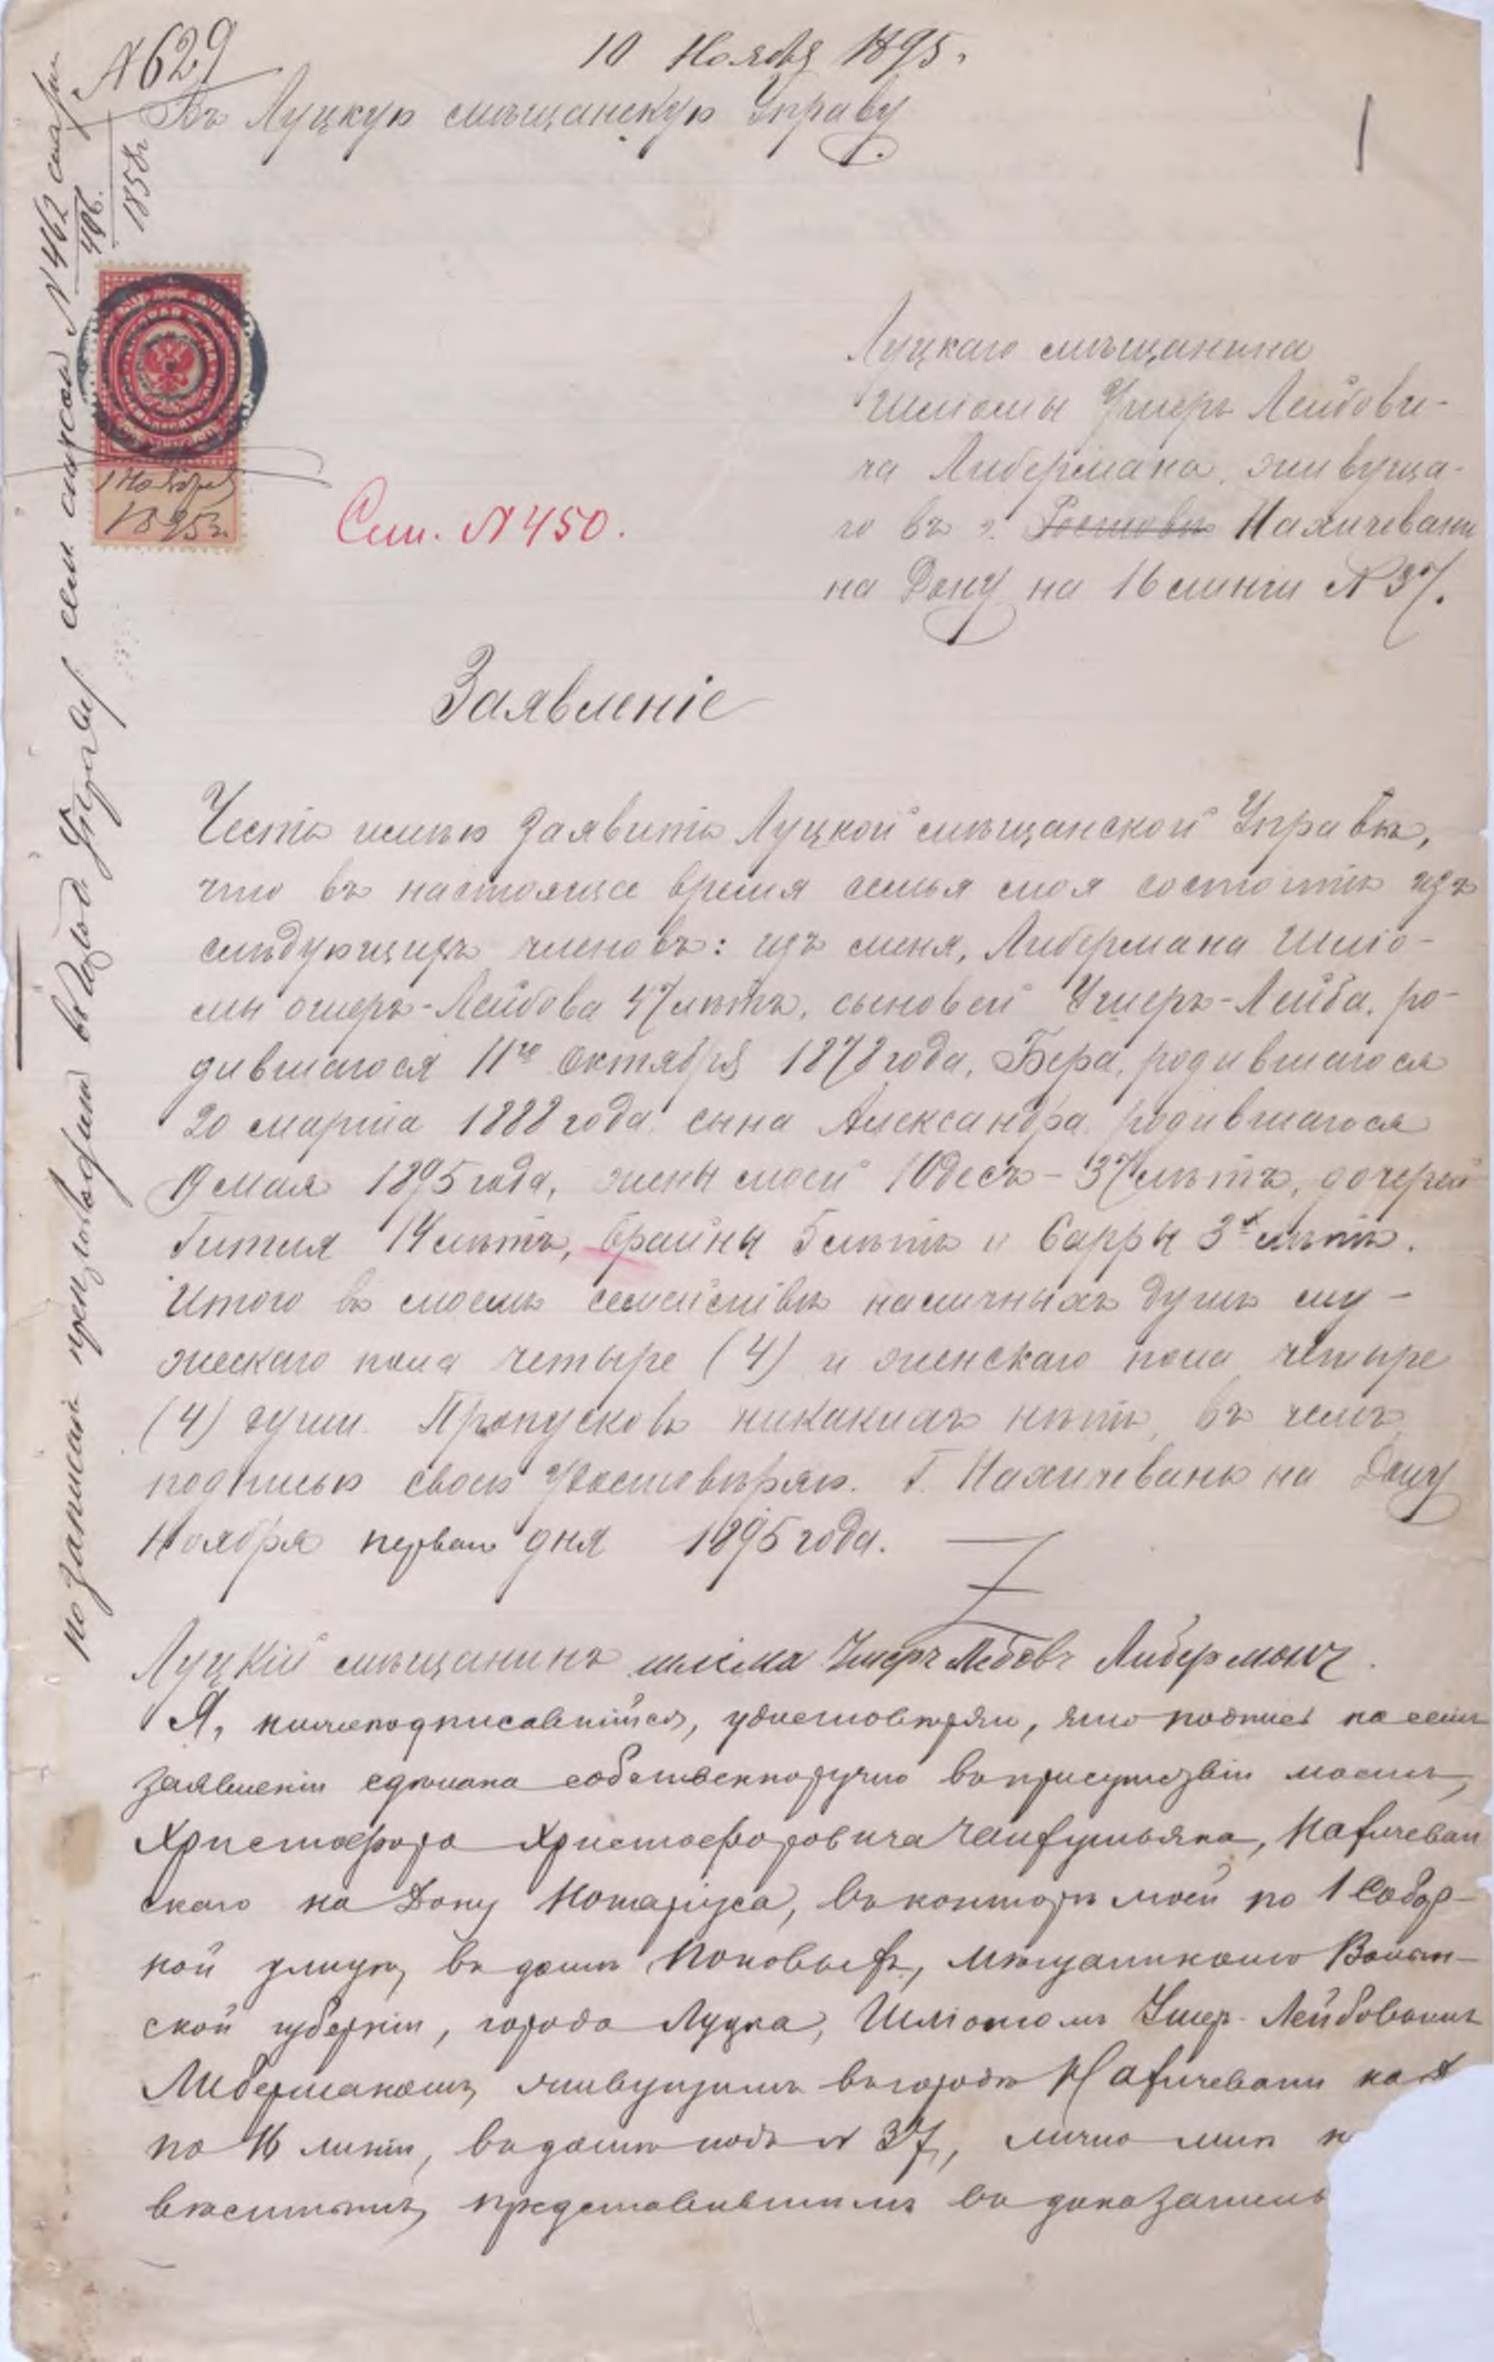 № 629
10 Ноября 1895.
Въ Луцкую мѣщанскую Управу
1
1858г
по записан въ Управѣ сем списка № 462 стар
496.
1 Ноября
1895г.
Сп. № 450.
Луцкаго мѣщанина
Шліомы Ушеръ Лейбови-
ча Либермана, живуща-
го въ г. Ростовѣ Нахичевани
на Дону на 16 линіи № 37.
Заявленіе
Честь имѣю заявить Луцкой мѣщанской Управѣ,
что въ настоящее время семья моя состоитъ изъ
слѣдующихъ членовъ: изъ меня, Либермана Шліо-
мы Ошеръ-Лейбова 47 лѣтъ, сыновей Ушеръ-Лейба, ро-
дившагося 11го Октября 1878 года, Бера, родившагося
20 марта 1888 года сына Александра родившагося
19 мая 1895 года, жены моей Юдесъ - 37 лѣтъ, дочерей
Гитля 14 лѣтъ, Брайны 5 лѣтъ и Сарры 3х лѣтъ.
Итого въ моемъ семействѣ наличныхъ душъ му-
жескаго пола четыре (4) и женскаго пола четыре
(4) души. Пропусковъ никакихъ нѣтъ, въ чемъ
подписью своею удостовѣряю. Г. Нахичевань на Дону
Ноября перваго дня 1895 года.
Луцкій мѣщанинъ шліома Ушеръ Лебовъ Либерманъ.
Я, нижеподписавшійся, удостовѣряю, что подпись на семъ
заявленіи сдѣлана собственноручно въ присутствіи моемъ,
Христофора Христофоровича, Нахичеван
скаго на Дону Нотаріуса, въ конторѣ моей по 1 Собор-
ной улицѣ, въ домѣ Поповыхъ, мѣщаниномъ Волын-
ской губерніи, города Луцка, Шліомомъ Ушер-Лейбовымъ
Либерманомъ, живущимъ въ городѣ Нахичевани на Д
по 16 линіи, въ домѣ подъ № 37, лично мнѣ н
вѣстнымъ, представившимъ въ доказатель